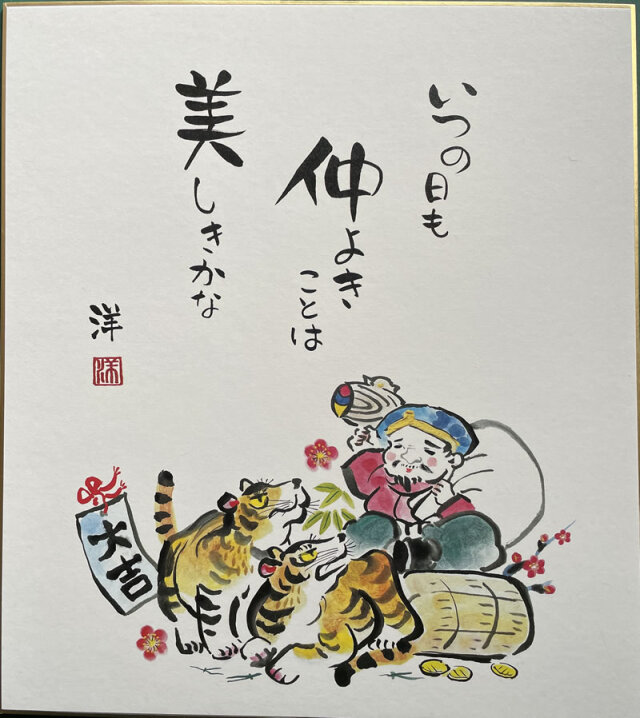 いつの日も
仲よき
ことは
美しきかな
洋
大吉